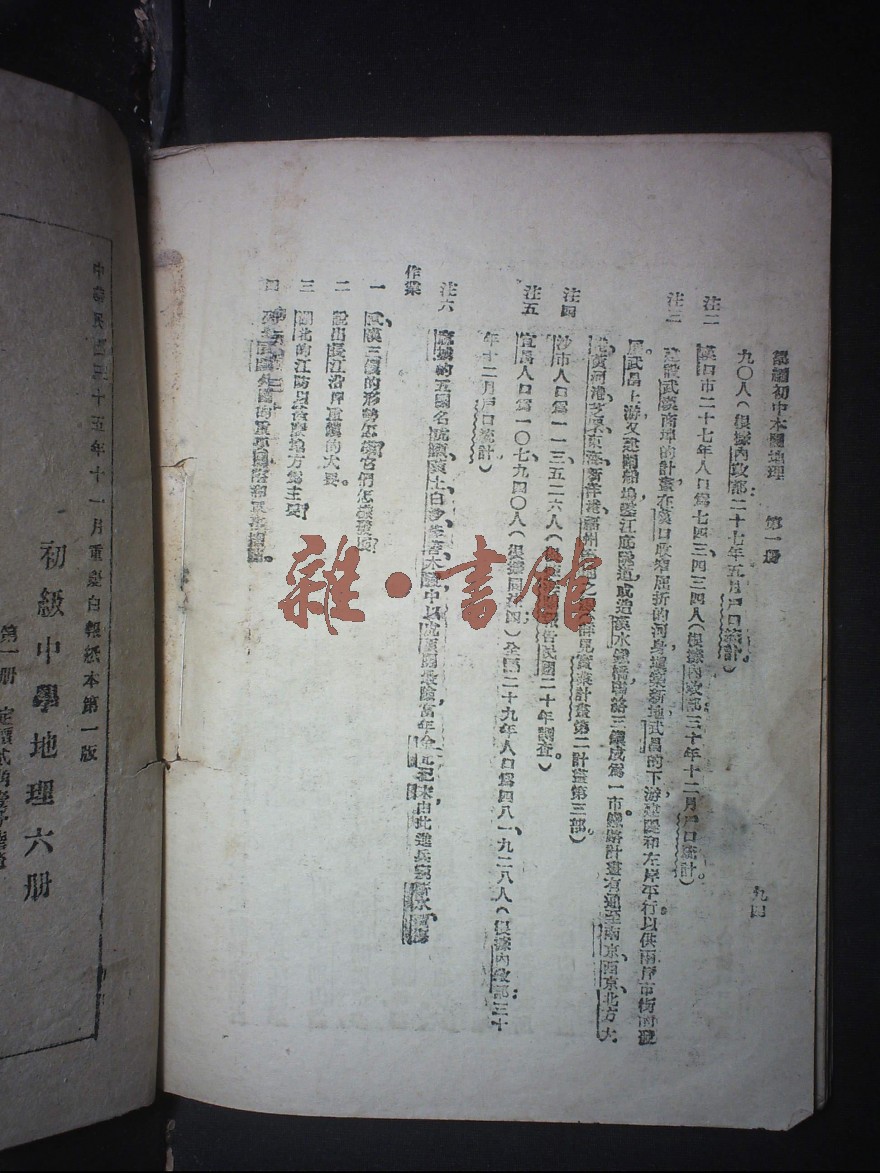 初中本國地理 第一册
九四
九〇人(根據內政部二十七年五月戶口統計)
注二 漢口市二十七年人口爲七四三四三四人(根據內政部三十年十二月戶口統計)。
注三 建設武漢商埠的計畫在漢口收窄屈折的河身填築新地武昌的下游和左岸平行以供兩岸市街的發
展。武昌上游又建船塢江底隧道或造漢水鐵橋聯絡三鎮成爲一市鐵路計畫有通至南京、西京、北方大
港、黃河港、芝罘、東海、新洋港、福州之詳見實業計畫第二計畫第三部。
注四 沙市人口爲一一三五二六人(根據報告民國二十年調查。)
注五 宜昌人口爲一〇七九四〇人(根據同注四)全縣二十九年人口爲四八一九二八人(根據內政部三十
年十二月戶口統計)
注六 麻城的五關名虎頭、黃土、白沙、木陵中以虎頭關最險當年金元犯宋由此進兵
作業
一 武漢三鎮的形勢怎樣它們怎樣發展
二 說出長江沿岸重鎮的大要。
三 湖北的江防以甚麼地方爲主要
四
中華民國三十五年十一月重慶白報紙本第一版
初級中學地理六册
第一册 定價
雜·書館